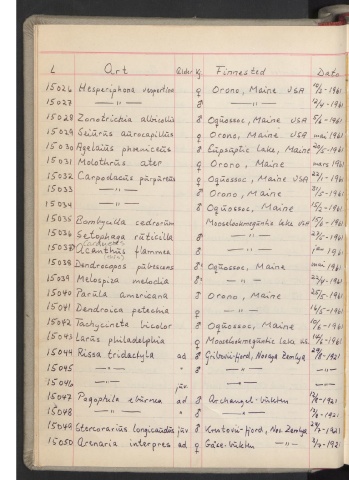 L Art Alder Kj. Finnested Dato
15026 Hesperiphona vespertina ♀ Orono, Maine USA 1961
15027 —"— ♂ —"— 1961
15028 Zonotrichia albicollis ♂ Oquossoc, Maine USA 1961
15029 Seiurus aurocapillus ♀ Orono, Maine USA mai 1961
15030 Agelaius phoeniceus ♂ Lake, Maine 20/5-1961
15031 Molothrus ater ♀ Orono, Maine mars 1961
15032 Carpodacus purpureus ♀ Oquossoc, Maine USA 1961
15033 —"— ♂ Orono, Maine 1961
15034 —"— ♂ Oquossoc, Maine 1961
15035 Bombycilla cedrorum Mooselookmeguntic Lake USA 15/6-1961
15036 Setophaga ruticilla ♂ —"— 1961
15037 Acanthis flammea ♂ —"— 1961
15038 Dendrocopos pubescens ♂ Oquossoc, Maine mai 1961
15039 Melospiza melodia ♂ —"— 22/4-1961
15040 Parula americana ♂ Orono, Maine 25/5-1961
15041 Dendroica petechia ♀ —"— 14/5-1961
15042 Tachycineta bicolor ♂ Oquossoc, Maine 10/6-1961
15043 Larus philadelphia ♀ Mooselookmeguntic Lake 1961
15044 Rissa tridactyla ad ♂ Gribovii-fjord, Novaya Zemlya 1921
15045 —"— " ♂ —"— —"—
15046 —"— juv —"— —"—
15047 Pagophila eburnea ad ♂ Archangel-bukten 1921
15048 —"— " ♂ —"— 1921
15049 Stercorarius longicaudus juv ♂ fjord, Nov. Zemlya 1921
15050 Arenaria interpres ad ♀ Gåse-bukten —"— 1921